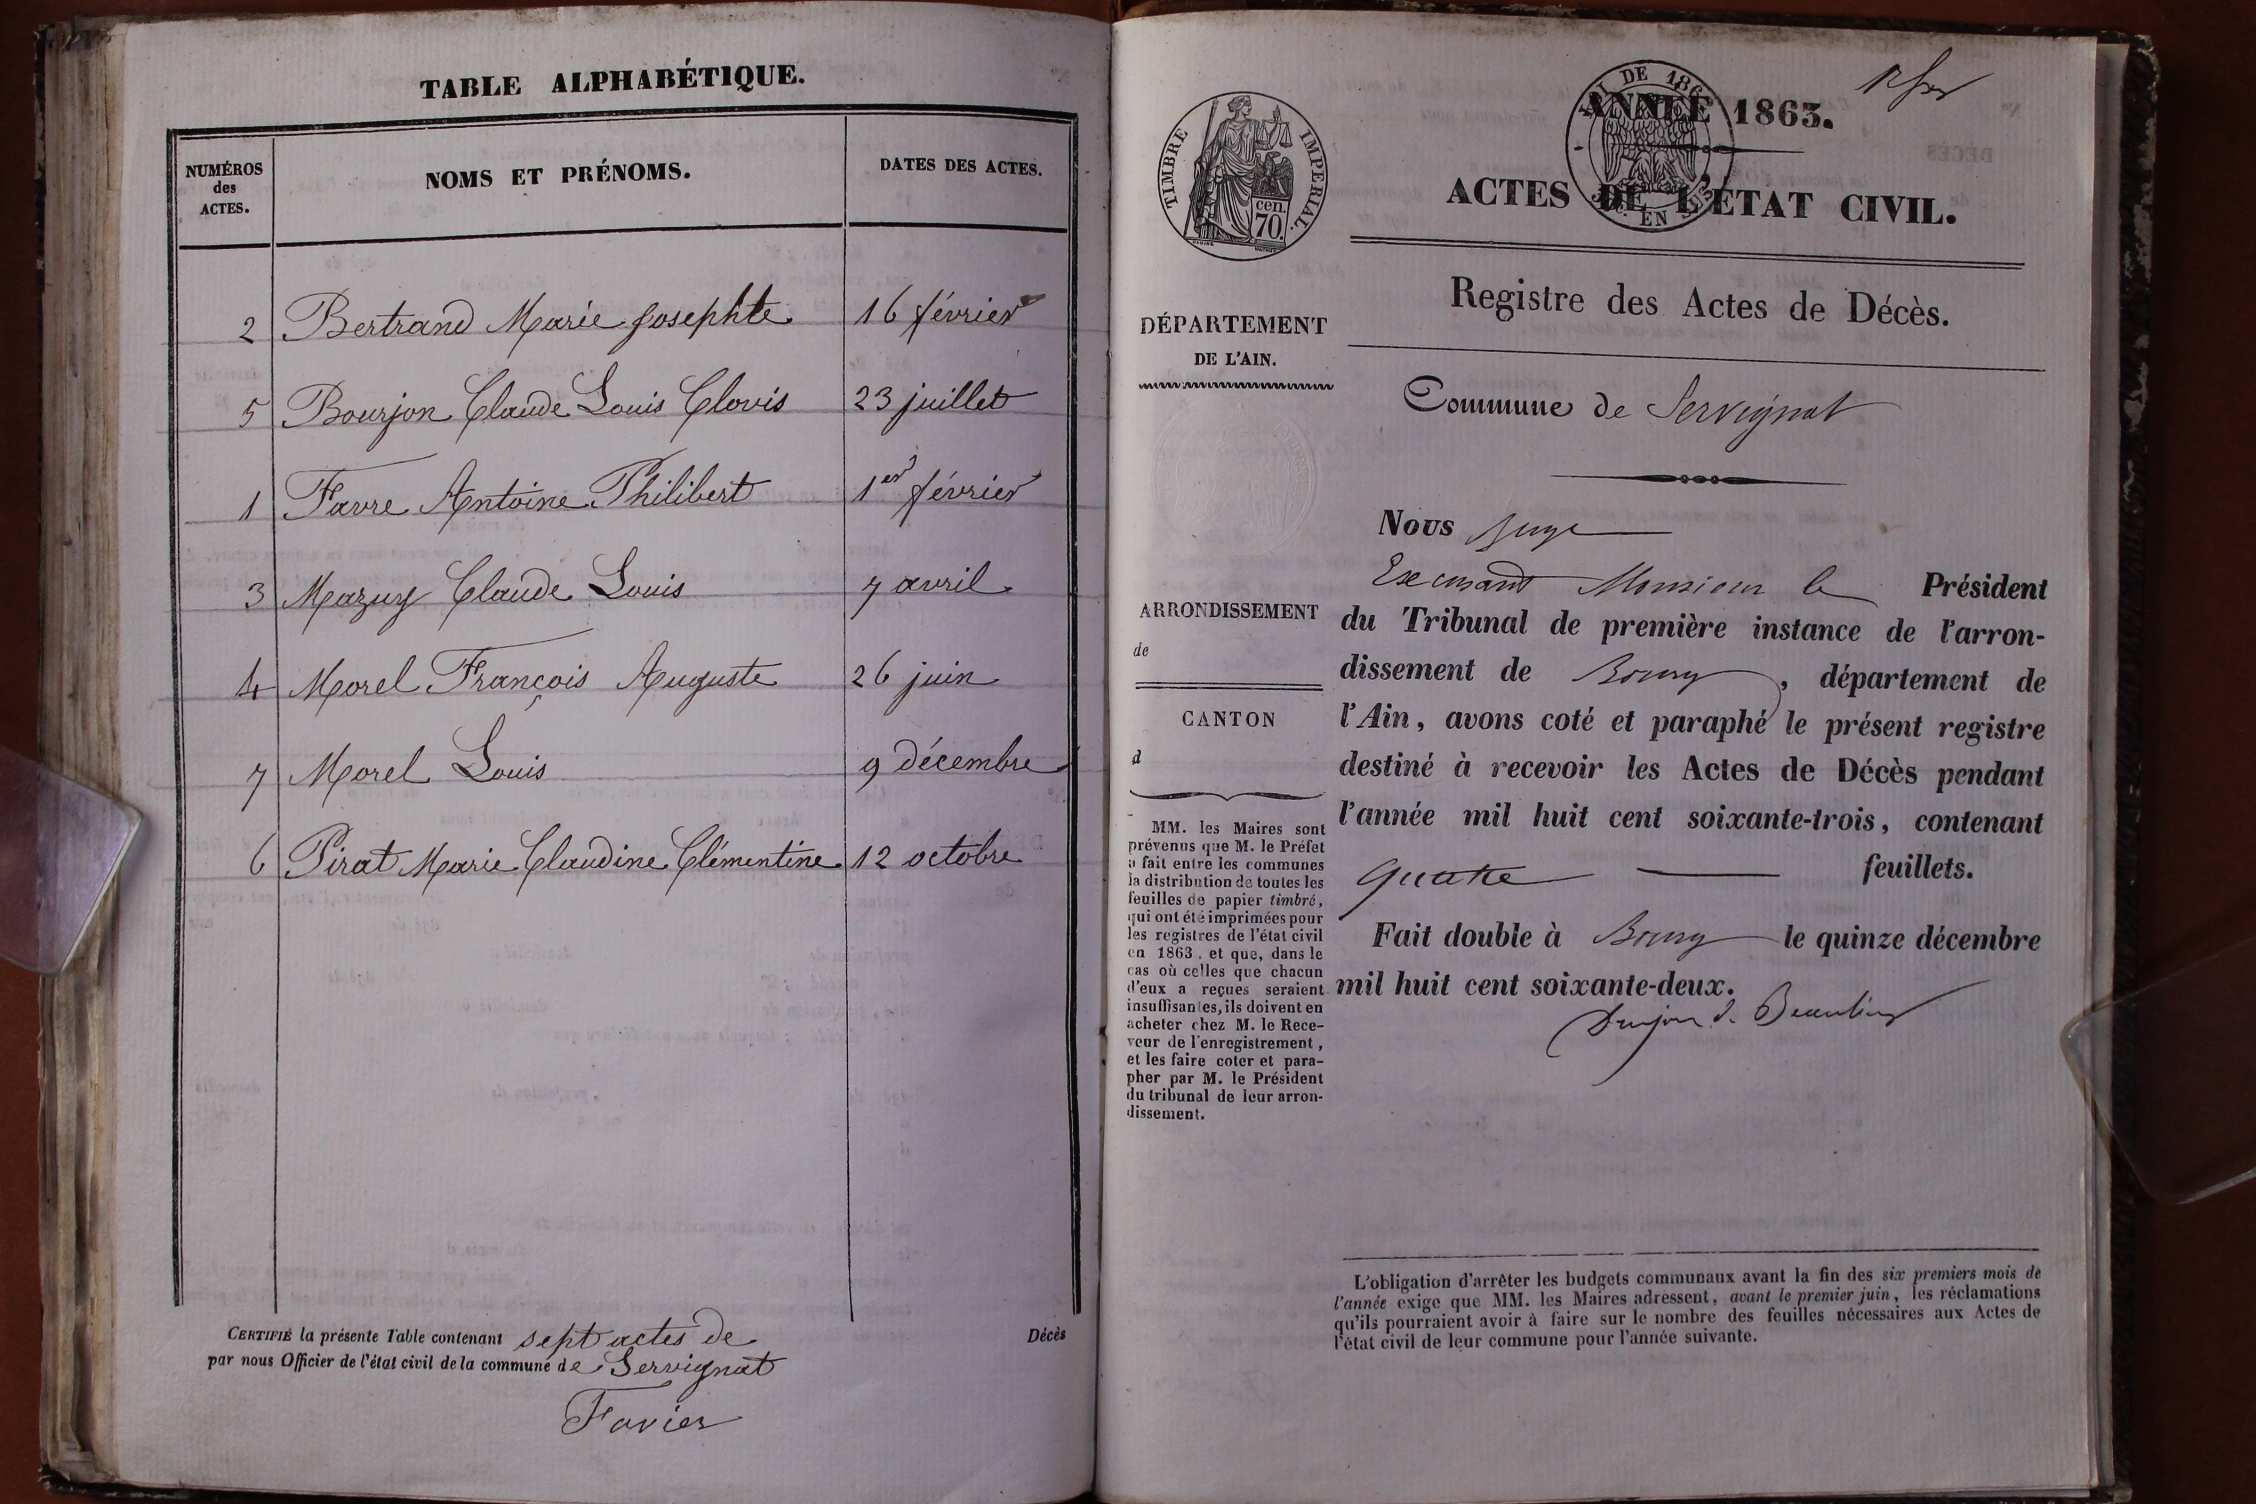 TABLE ALPHABÉTIQUE.
NUMÉROS des ACTES.
NOMS ET PRÉNOMS.
DATES DES ACTES.
2 Bertrand Marie Josephte 16 février
5 Bourjon Claude Louis Clovis 23 juillet
1 Favre Antoine Philibert 1er février
3 Mazuy Claude Louis 7 avril
4 Morel François Auguste 26 juin
7 Morel Louis 9 décembre
6 Pirat Marie Claudine Clémentine 12 octobre
CERTIFIÉ la présente Table contenant sept actes de Décès
par nous Officier de l'état civil de la commune de Servignat
Favier
TIMBRE IMPERIAL.
cen.
70.
DÉPARTEMENT
DE L'AIN.
ARRONDISSEMENT
de
CANTON
d
MM. les Maires sont
prévenus que M. le Préfet
a fait entre les communes
la distribution de toutes les
feuilles de papier timbré,
qui ont été imprimées pour
les registres de l'état civil
en 1863, et que, dans le
cas où celles que chacun
d'eux a reçues seraient
insuffisantes, ils doivent en
acheter chez M. le Rece-
veur de l'enregistrement,
et les faire coter et para-
pher par M. le Président
du tribunal de leur arron-
dissement.
ANNÉE 1863.
ACTES DE L'ÉTAT CIVIL.
Registre des Actes de Décès.
Commune de Servignat
Nous Juge
Excusant Monsieur le Président
du Tribunal de première instance de l'arron-
dissement de Bourg, département de
l'Ain, avons coté et paraphé le présent registre
destiné à recevoir les Actes de Décès pendant
l'année mil huit cent soixante-trois, contenant
quatre feuillets.
Fait double à Bourg le quinze décembre
mil huit cent soixante-deux.
L'obligation d'arrêter les budgets communaux avant la fin des six premiers mois de
l'année exige que MM. les Maires adressent, avant le premier juin, les réclamations
qu'ils pourraient avoir à faire sur le nombre des feuilles nécessaires aux Actes de
l'état civil de leur commune pour l'année suivante.